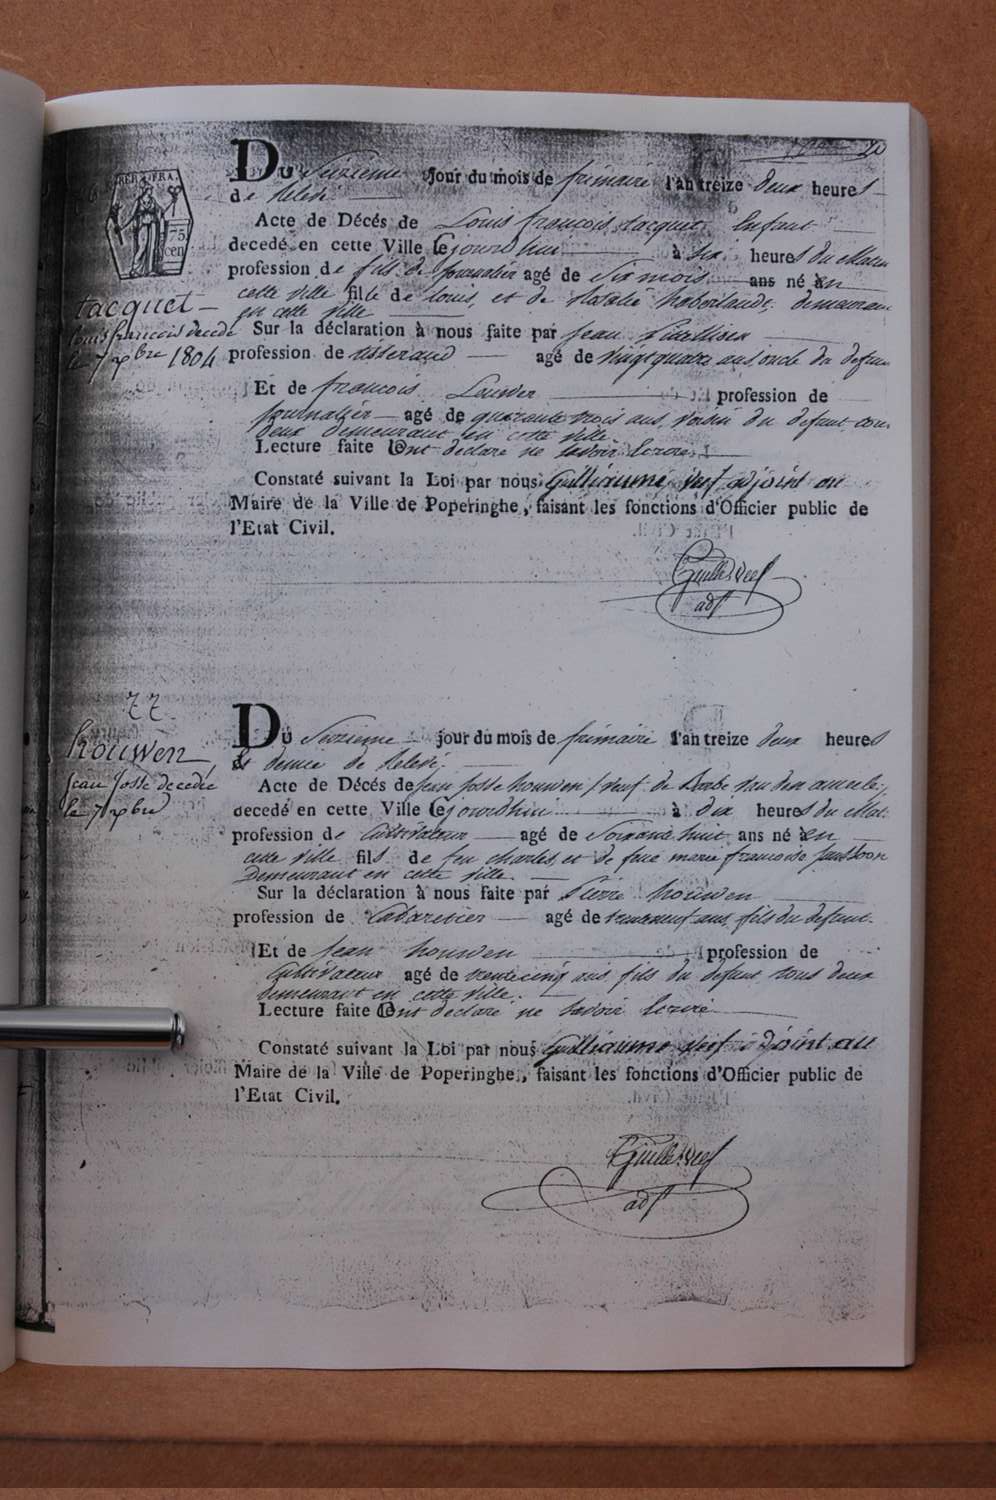 75
cen
tacquet
louis francois decedé
le 7 xbre 1804
Du Seizieme Jour du mois de frimaire l'an treize deux heures
de Relevé
Acte de Décés de Louis francois tacquet Enfant
decedé en cette Ville Ce jourdhui à six heures du Matin
profession de fils de journalier agé de Six mois ans né en
cette ville fils de louis, et de Natalie haberlandt, demeurant
en cette ville
Sur la déclaration à nous faite par Jean
profession de tisserand agé de vingt quatre ans, oncle du defunt
Et de francois Louwer profession de
journalier agé de quarante trois ans, voisin du defunt tous
deux demeurant en cette ville.
Lecture faite Ont declaré ne savoir Ecrire
Constaté suivant la Loi par nous Guilliaume adjoint au
Maire de la Ville de Poperinghe, faisant les fonctions d'Officier public de
l'Etat Civil.
adjt
77
houwen
Jean Josse decedé
le 7 xbre
Du Seizieme jour du mois de frimaire l'an treize deux heures
& demie de Relevé.
Acte de Décés de Jean Josse houwen / veuf de
decedé en cette Ville Ce jourdhui à dix heures du Mat.
profession de Cultivateur agé de Soixante huit ans né en
cette ville fils de feu charles, et de feue marie francoise
Demeurant en cette ville.
Sur la déclaration à nous faite par Pierre houwen
profession de Cabaretier agé de trente neuf ans, fils du defunt.
Et de Jean houwen profession de
Cultivateur agé de trente cinq ans fils du defunt tous deux
demeurant en cette ville.
Lecture faite Ont declaré ne savoir Ecrire
Constaté suivant la Loi par nous Guilliaume adjoint au
Maire de la Ville de Poperinghe, faisant les fonctions d'Officier public de
l'Etat Civil.
adjt